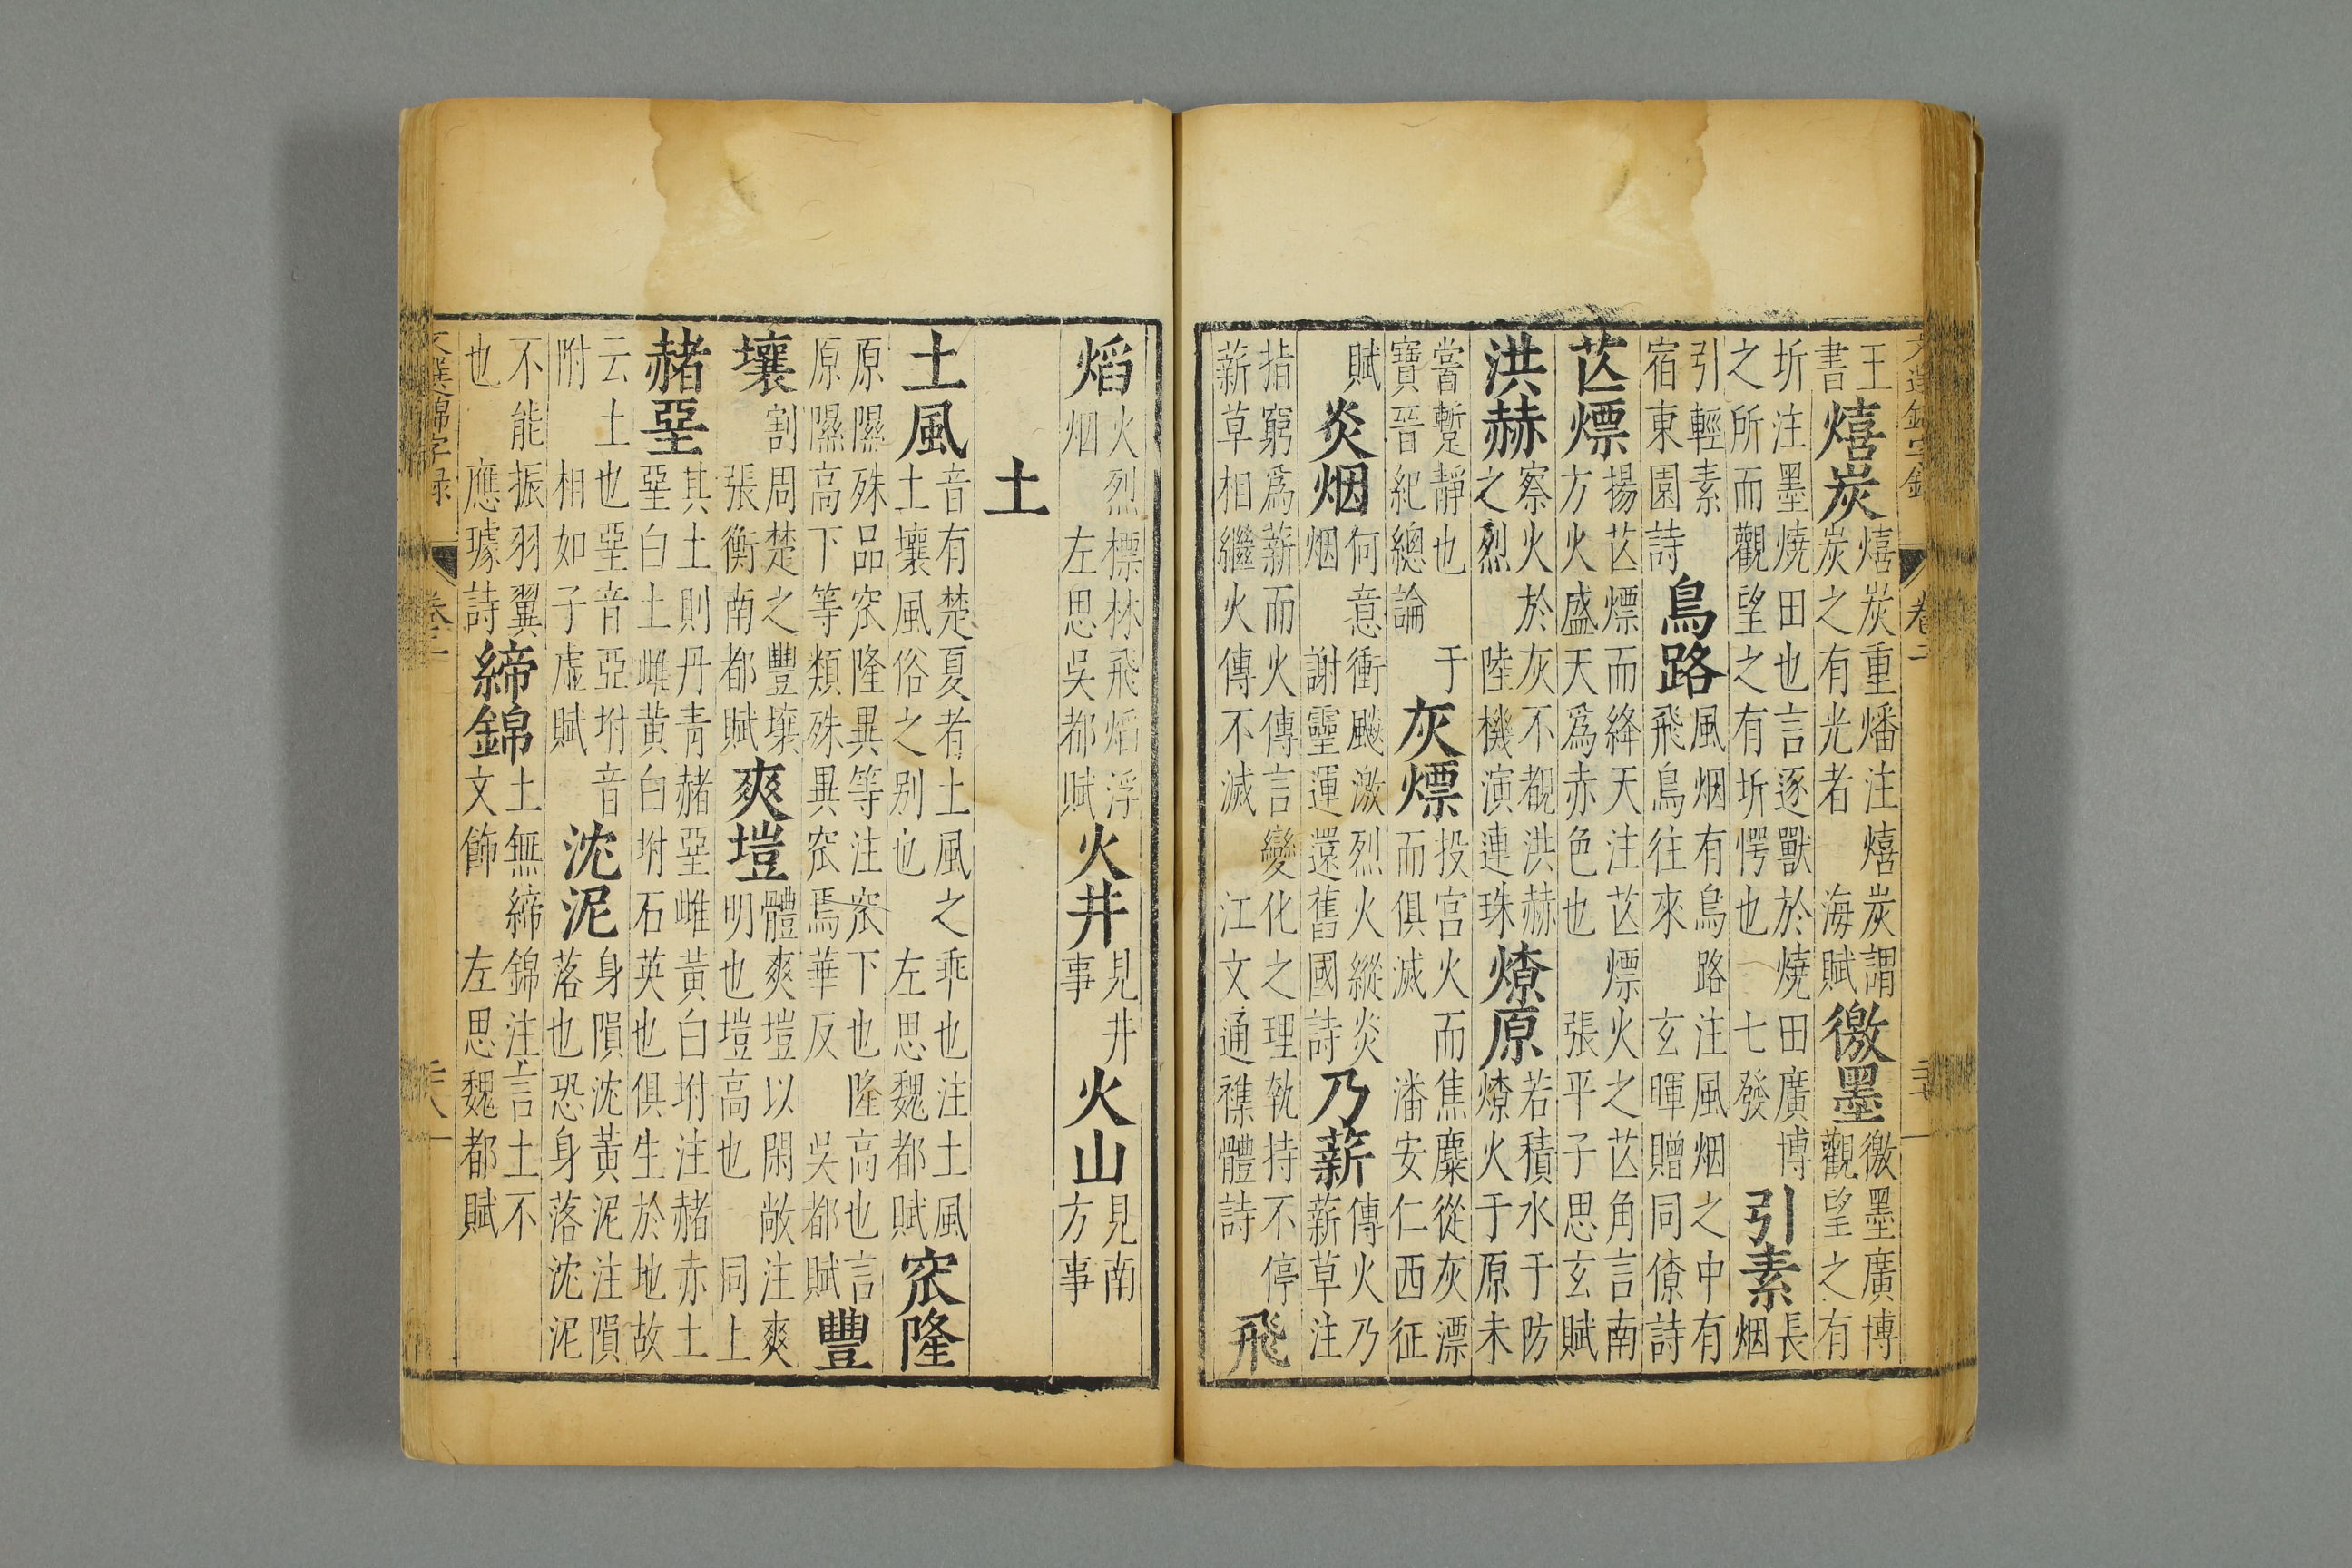 文選錦字錄 卷二
王書 熺炭 熺炭重燔注熺炭謂炭之有光者 海賦 徼墨 徼墨廣博觀望之有
圻注墨燒田也言逐獸於燒田廣博之所而觀望之有圻愕也 七發 引素 長烟
引輕素宿東園詩 鳥路 風烟有鳥路注風烟之中有飛鳥往來 玄暉贈同僚詩
芒熛 揚芒熛而絳天注芒熛火之芒角言南方火盛天爲赤色也 張平子思玄賦
洪赫 察火於灰不覩洪赫之烈 陸機演連珠 燎原 若積水于防燎火于原未
嘗蹔靜也 于寶晉紀總論 灰熛 投宮火而焦麋從灰漂而俱滅 潘安仁西征
賦 炎烟 何意衝飈激烈火縱炎烟 謝靈運還舊國詩 乃薪 傳火乃薪草注
指窮爲薪而火傳言變化之理執持不停薪草相繼火傳不滅 江文通襍體詩 飛
焰 火烈標林飛焰浮烟 左思吳都賦 火井 見井事 火山 見南方事
土
土風 音有楚夏者土風之乖也注土風土壤風俗之别也 左思魏都賦 窊隆
原隰殊品窊隆異等注窊下也隆高也言原隰高下等類殊異窊焉華反 吳都賦 豐
壤 割周楚之豐壤張衡南都賦 爽塏 體爽塏以閑敞注爽明也塏高也 同上
赭堊 其土則丹青赭堊雌黃白坿注赭赤土堊白土雌黄白坿石英也俱生於地故
云土也堊音亞坿音附 相如子虛賦 沈泥 身隕沈黃泥注隕落也恐身落沈泥
不能振羽翼也 應璩詩 締錦 土無締錦注言土不文飾 左思魏都賦
文選錦字録 卷二